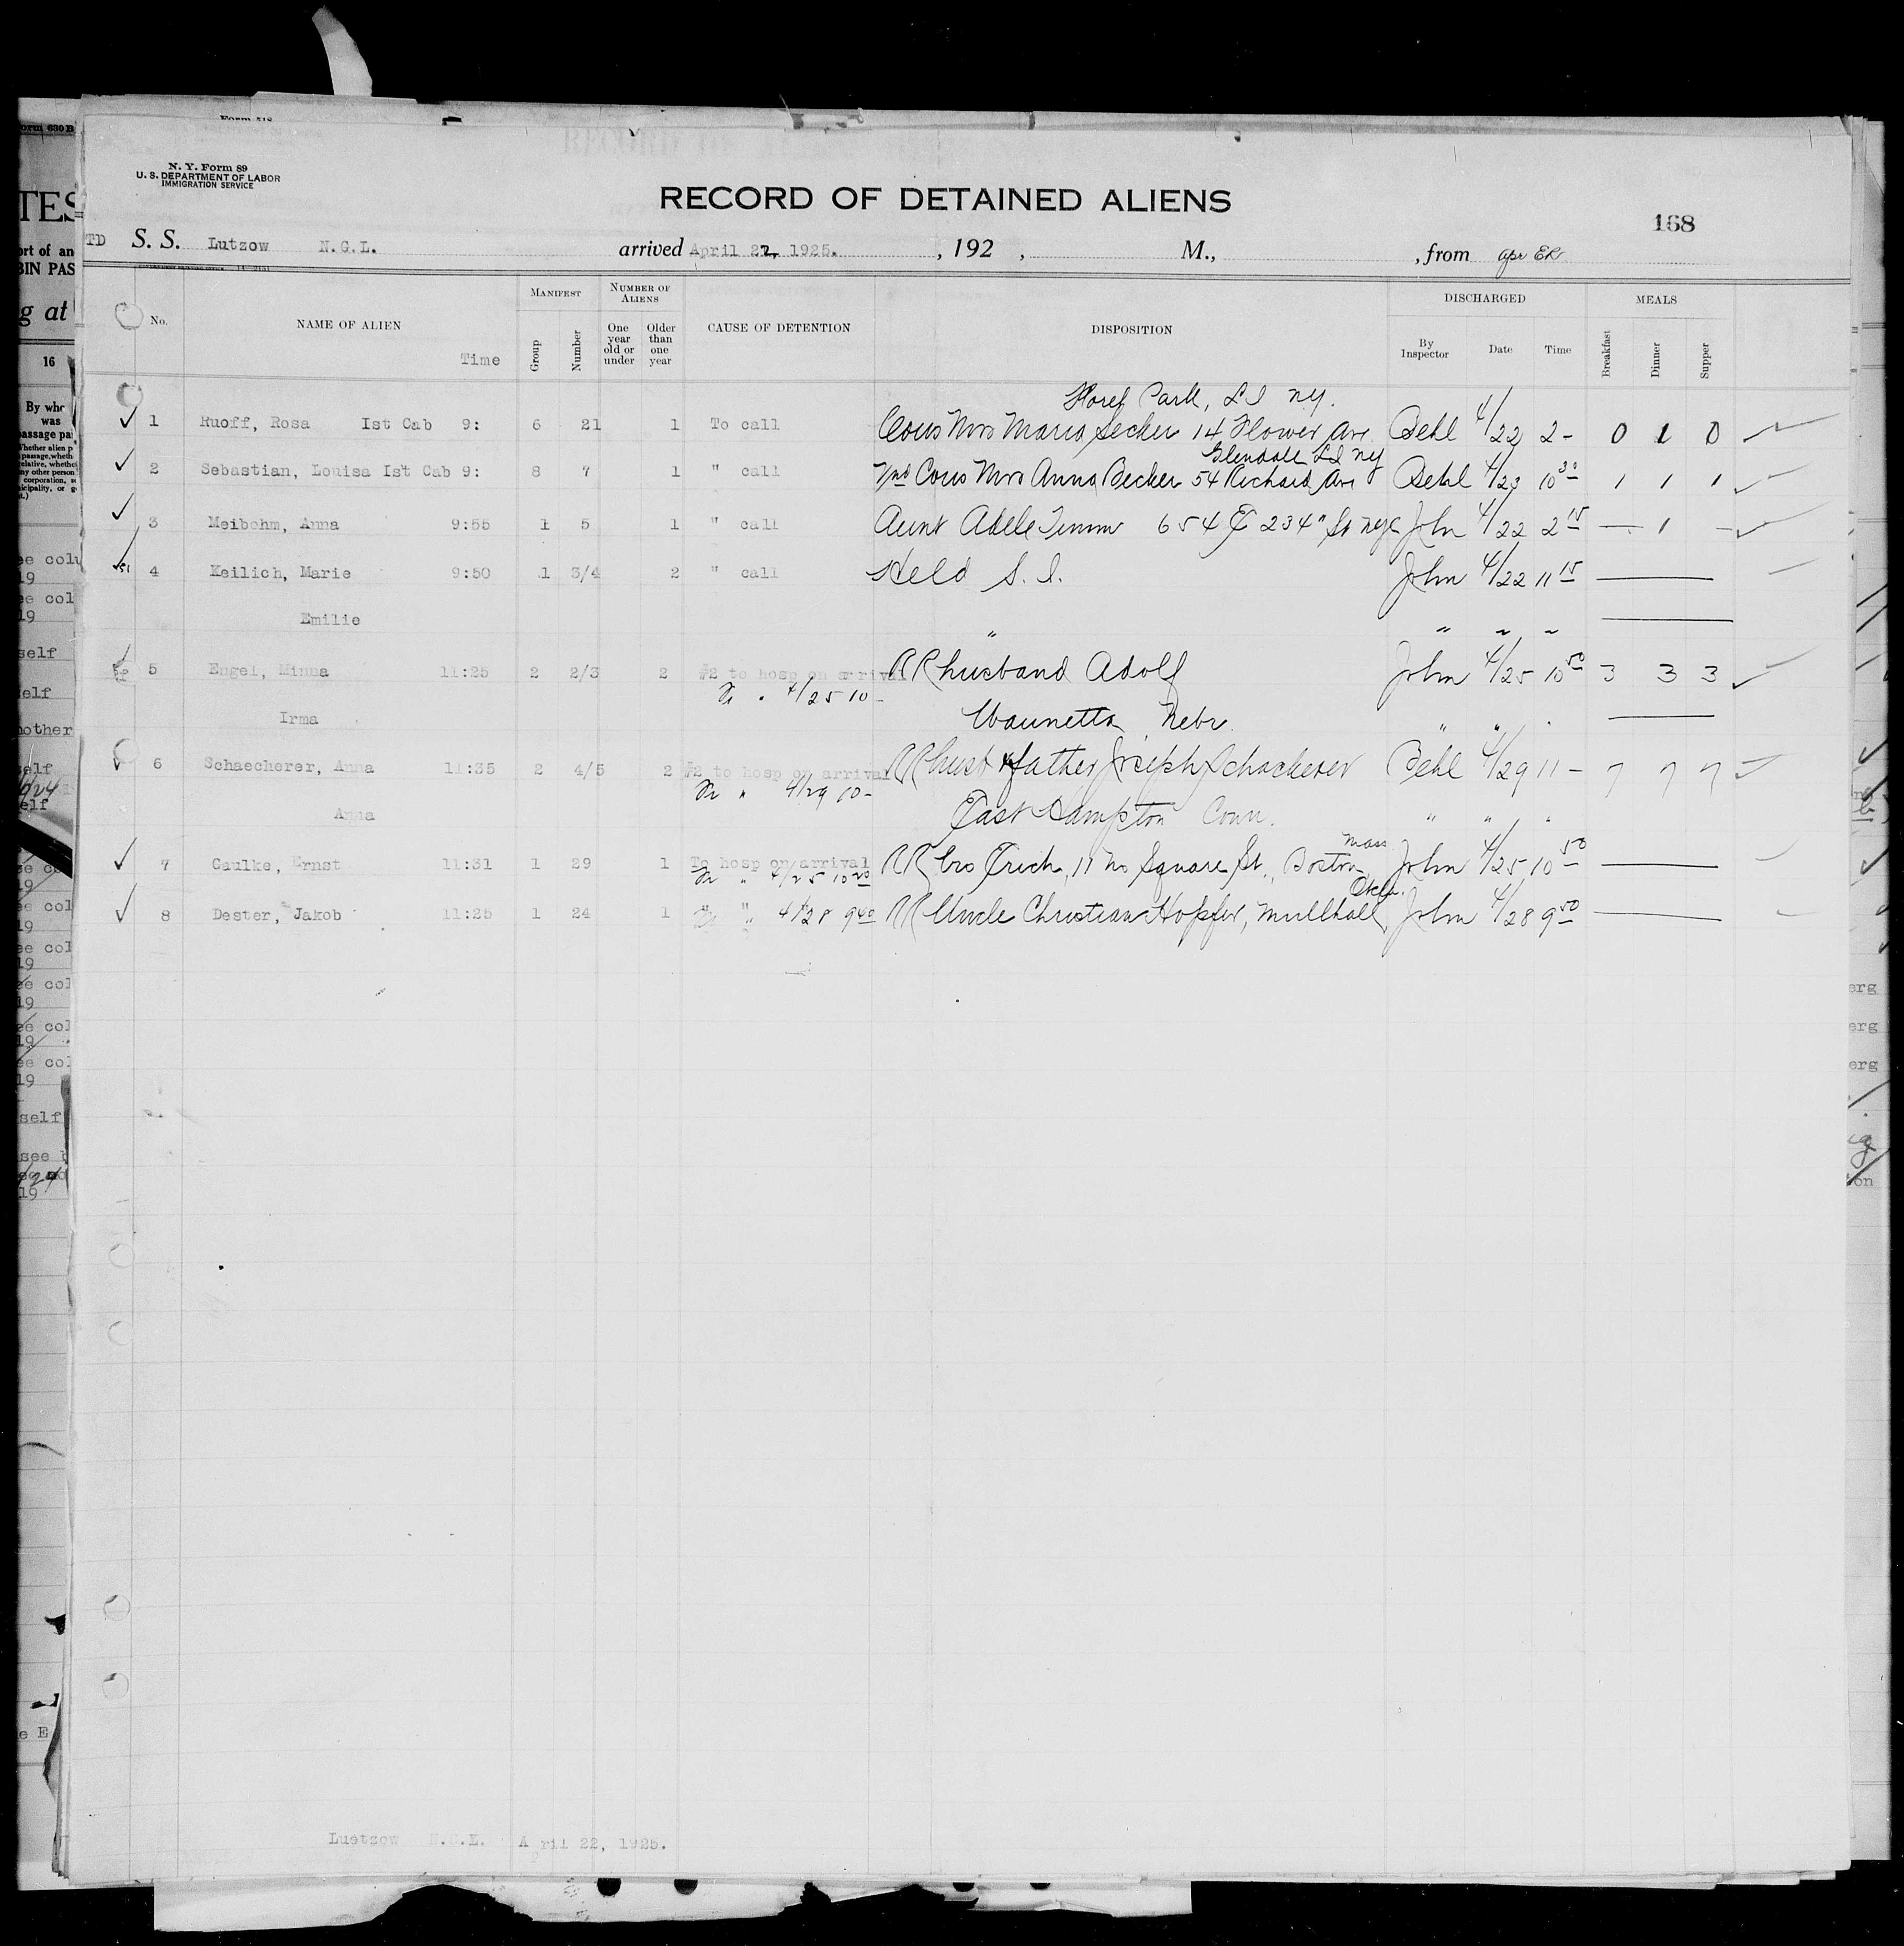 N. Y. Form 89
U. S. DEPARTMENT OF LABOR
IMMIGRATION SERVICE
RECORD OF DETAINED ALIENS
168
TD S. S. Lutzow N.G.L. arrived April 22, 1925. , 192 , M., , from
No. NAME OF ALIEN Time MANIFEST Group Number NUMBER OF ALIENS One year old or under Older than one year CAUSE OF DETENTION DISPOSITION DISCHARGED By Inspector Date Time MEALS Breakfast Dinner Supper
Park, L I NY.
1 Ruoff, Rosa Ist Cab 9: 6 21 1 To call Cous Mrs Maria Secker 14 Flower Ave Behl 4/22 2- 0 1 0
Glendale LI NY
2 Sebastian, Louisa Ist Cab 9: 8 7 1 " call Cous Mrs Anna Becker 54 Richard Ave Behl 4/23 10 30 1 1 1
3 Meibohm, Anna 9:55 1 5 1 " call Aunt Adele Timm 654 E 234" St NYC John 4/22 2 15 — 1 —
4 Keilich, Marie 9:50 1 3/4 2 " call Held S. I. John 4/22 11 15 —
Emilie " " " " —
5 Engel, Minna 11:25 2 2/3 2 #2 to hosp on arrival RR husband Adolf John 4/25 10 50 3 3 3
Fr " 4/25 10 -
Irma Wauneta Nebr. " " " —
6 Schaecherer, Anna 11:35 2 4/5 2 #2 to hosp on arrival RR husb & father Joseph Schackerer Behl 4/29 11 - 7 7 7
Fr " 4/29 10 -
Anna East Hampton Conn. " " "
Mass
7 Caulke, Ernst 11:31 1 29 1 To hosp on arrival RR bro Erich, 11 No Square St., Boston, John 4/25 10 50 —
Fr " 4/25 10 20
Okla.
8 Dester, Jakob 11:25 1 24 1 " " 4/28 9 40 RR Uncle Christian Hopfer, Mullhall, John 4/28 9 50 —
Luetzow N.G.L. April 22, 1925.